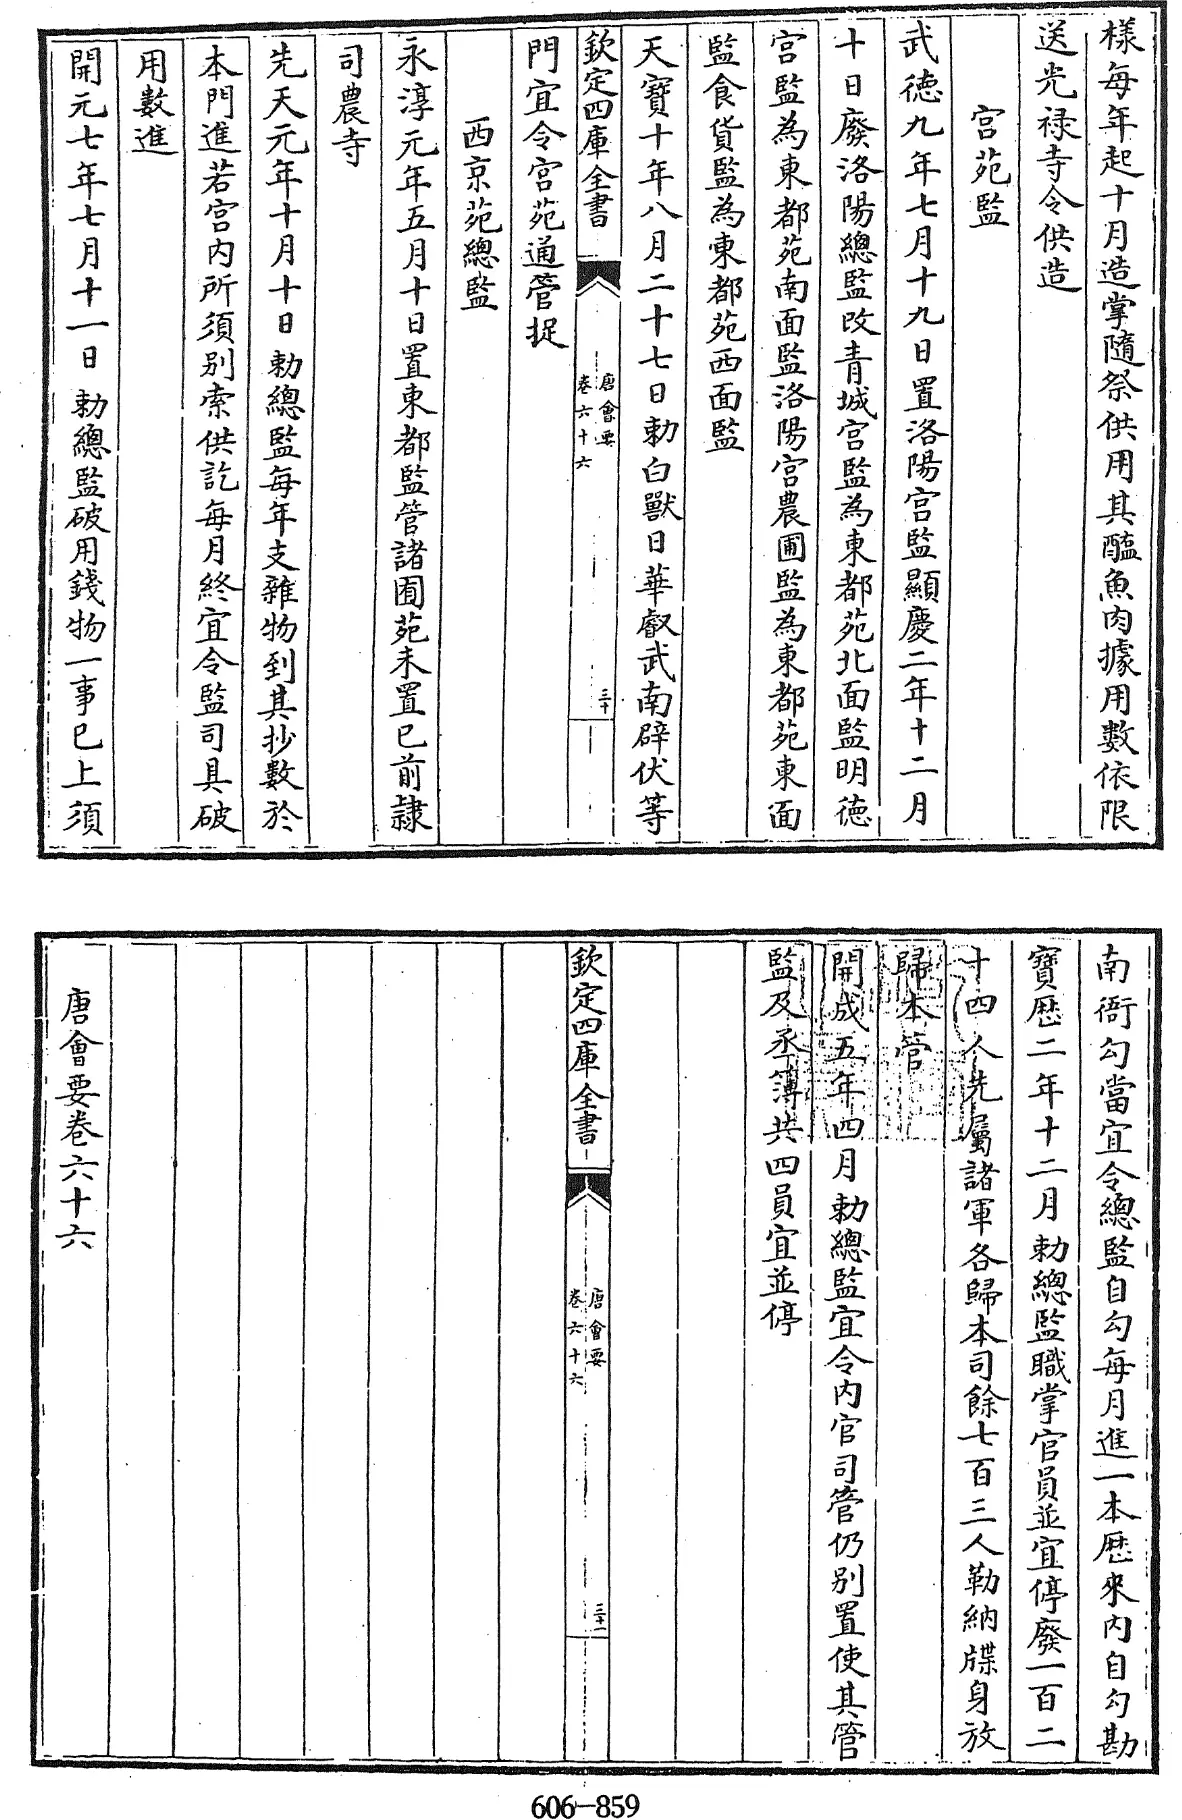 樣每年起十月造掌隨祭供用其醢魚肉據用數依限
送光禄寺令供造
宫苑監
武德九年七月十九日置洛陽宫監顯慶二年十二月
十日廢洛陽總監改青城宫監為東都苑北面監明德
宫監為東都苑南面監洛陽宫農圃監為東都苑東面
監食貨監為東都苑西面監
天寶十年八月二十七日勅白獸日華叡武南辟伏等
欽定四庫全書
唐會要
卷六十六
三十
門宜令宫苑通管捉
西京苑總監
永淳元年五月十日置東都監管諸囿苑未置已前隸
司農寺
先天元年十月十日勅總監每年支雜物到其抄數於
本門進若宫内所須别索供訖每月終宜令監司具破
用數進
開元七年七月十一日勅總監破用錢物一事已上須
南衙勾當宜令總監自勾每月進一本歴來内自勾勘
寶歴二年十二月勅總監職掌官員並宜停廢一百二
十四人先屬諸軍各歸本司餘七百三人勒納牒身放
歸本管
開成五年四月勅總監宜令内官司管仍别置使其管
監及丞簿共四員宜並停
欽定四庫全書
唐會要
卷六十六
三十一
唐會要卷六十六
606-859